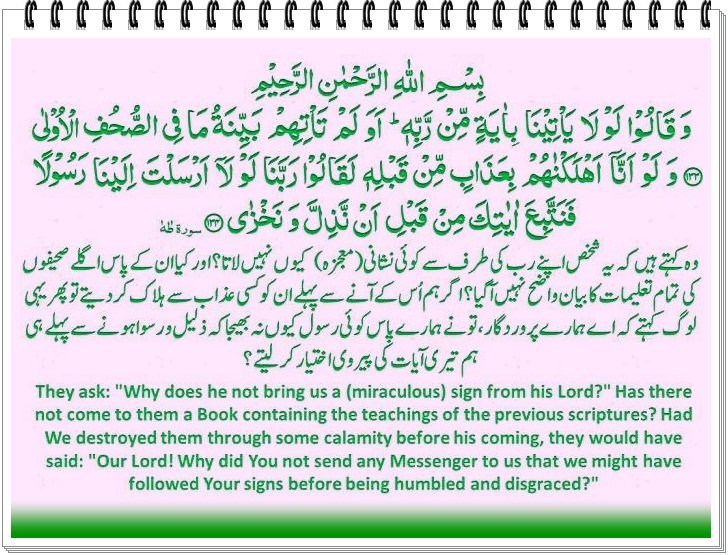 بِسْمِ اللهِ الرَّحْمٰنِ الرَّحِيْمِ
وَ قَالُوْا لَوْ لَا يَاْتِيْنَا بِاٰيَةٍ مِّنْ رَّبِّهٖ ؕ اَوَ لَمْ تَاْتِهِمْ بَيِّنَةُ مَا فِى الصُّحُفِ الْاُوْلٰى
۱۳۳ وَ لَوْ اَنَّاۤ اَهْلَكْنٰهُمْ بِعَذَابٍ مِّنْ قَبْلِهٖ لَقَالُوْا رَبَّنَا لَوْ لَاۤ اَرْسَلْتَ اِلَيْنَا رَسُوْلًا
فَنَتَّبِعَ اٰيٰتِكَ مِنْ قَبْلِ اَنْ نَّذِلَّ وَ نَخْزٰى ۱۳۴ سورة طٰهٰ
وہ کہتے ہیں کہ یہ شخص اپنے رب کی طرف سے کوئی نشانی (معجزہ) کیوں نہیں لاتا؟ اور کیا ان کے پاس اگلے صحیفوں
کی تمام تعلیمات کا بیان واضح نہیں آگیا؟ اگر ہم اُس کے آنے سے پہلے ان کو کسی عذاب سے ہلاک کر دیتے تو پھر یہی
لوگ کہتے کہ اے ہمارے پروردگار، تو نے ہمارے پاس کوئی رسول کیوں نہ بھیجا کہ ذلیل و رسوا ہونے سے پہلے ہی
ہم تیری آیات کی پیروی اختیار کر لیتے؟
They ask: "Why does he not bring us a (miraculous) sign from his Lord?" Has there
not come to them a Book containing the teachings of the previous scriptures? Had
We destroyed them through some calamity before his coming, they would have
said: "Our Lord! Why did You not send any Messenger to us that we might have
followed Your signs before being humbled and disgraced?"